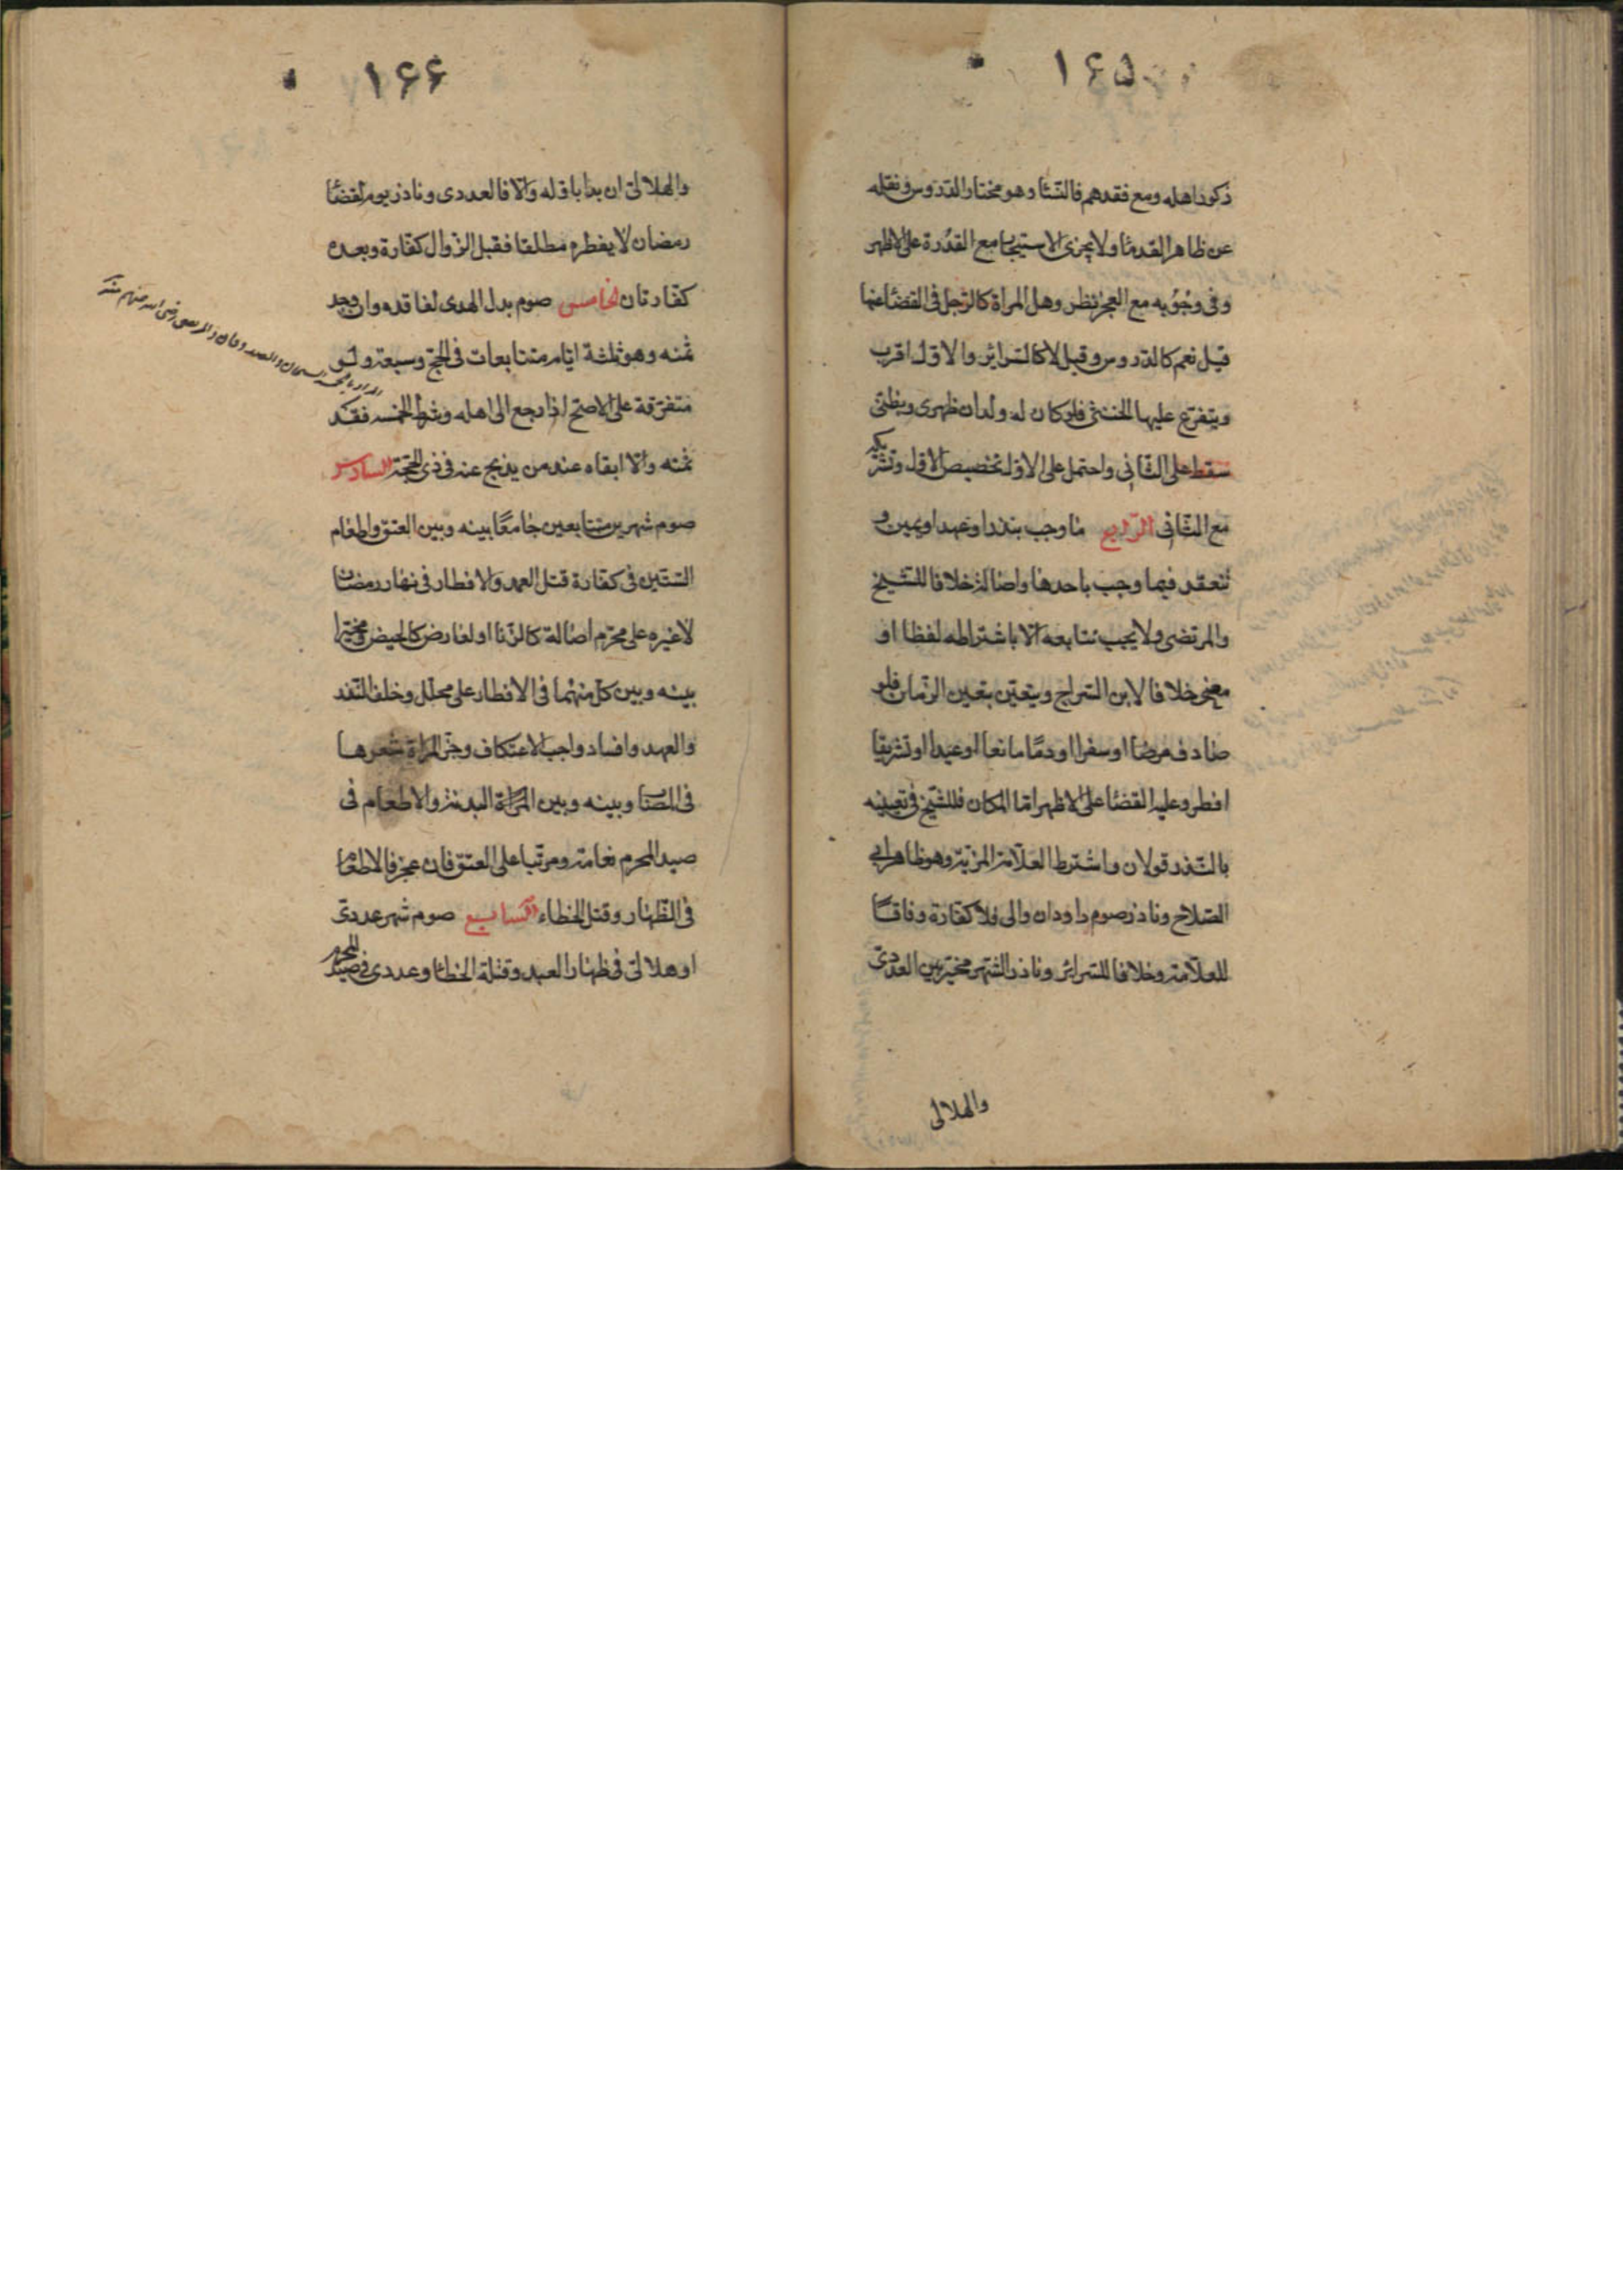 ١۶۵
ذكور اهله ومع فقدهم فالنسا وهو مختار الدروس ونقله
عن ظاهر القدما ولا يجزى الاستيجار مع القدرة على الاظهر
وفى وجوبه مع العجز نظر وهل المراة كالرجل فى القضا عنها
قيل نعم كالدروس وقيل لا كالسرائر والاول اقرب
ويتفرع عليها الخنثى فلو كان له ولدان ظهرى وبطنى
سقط على الثانى واحتمل على الاول تخصيص الاول وتشريكه
مع الثانى الرابع ما وجب بنذر او عهد او يمين و
تنعقد فيما وجب باحدها واصالة خلافا للشيخ
والمرتضى ولا يجب تتابعه الا باشتراطه لفظا او
معنى خلافا لابن السراج ويتعين بتعين الزمان فلو
صادف مرضا او سفرا او دما مانعا او عيدا او تشريقا
افطر وعليه القضا على الاظهر اما المكان فللشيخ فى تعيينه
بالنذر قولان واشترط العلامة المزية وهو ظاهر ابى
الصلاح وناذر صوم داود ان والى فلا كفارة وفاقا
للعلامة وخلافا للسرائر وناذر الشهر مخير بين العددى
والهلالى
١۶۶
والهلالى ان بدا باوله والا فالعددى وناذر يوم لقضا
رمضان لا يفطره مطلقا فقبل الزوال كفارة وبعده
كفارتان الخامس صوم بدل الهدى لفاقده وان وجد
ثمنه وهو ثلثة ايام متتابعات فى الحج وسبعة ولو
متفرقة على الاصح اذا رجع الى اهله وشرط الخمسه فقد
ثمنه والا ابقاه عند من يذبح عنه فى ذى الحجة السادس
صوم شهرين متتابعين جامعا بينه وبين العتق واطعام
الستين فى كفارة قتل العمد والافطار فى نهار رمضان
لا غيره على محرم اصالة كالزنا او لعارض كالحيض ومخيرا
بينه وبين كل منهما فى الافطار على محلل وخلف النذر
والعهد وافساد واجب الاعتكاف وجز المراة شعرها
فى المصاب وبينه وبين البدنة والاطعام فى
صيد المحرم نعامة ومرتبا على العتق فان عجز فالاطعام
فى الظهار وقتل الخطاء السابع صوم شهر عددى
او هلالى فى ظهار العبد وقتله الخطا وعددى فى صيد المحرم